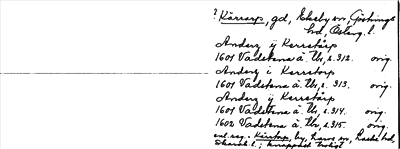 ? Kärrarp, gd, Ekeby sn, Göstrings
hd, Österg. l.
Anders ij Kerrstorp
1601 Vadstena ä. Ur, s. 312. orig.
Anders i Kerrstorp
1601 Vadstena ä. Ur, s. 313. orig.
Anders ij Kerrstorp
1601 Vadstena ä. Ur, s. 314. orig.
1602 Vadstena ä. Ur, s. 315. orig.
enl. reg. Kärrtorp, by, sn, hd,
Skarab. l.; knappast troligt